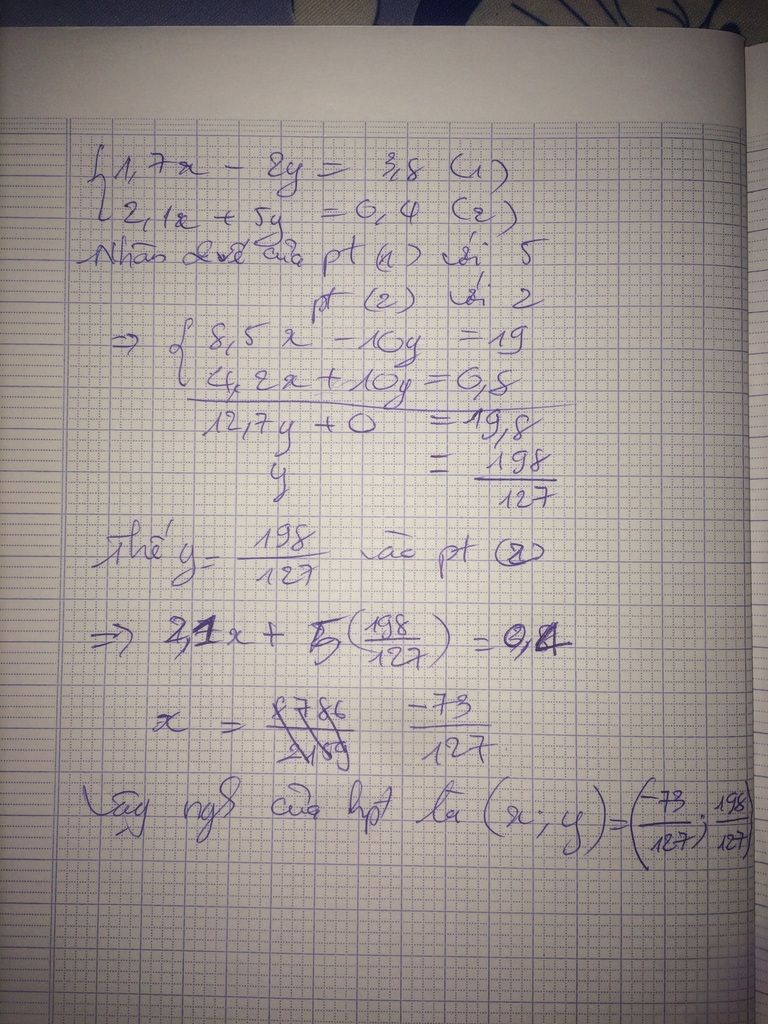 { 1,7x - 2y = 3,8 (1)
2,1x + 5y = 0,4 (2)
Nhân 2 vế của pt (1) với 5
pt (2) với 2
=> { 8,5x - 10y = 19
4,2x + 10y = 0,8
12,7y + 0 = 19,8
y = 198/127
Thế y = 198/127 vào pt (2)
=> 2,1x + 5(198/127) = 0,4
x = -73/127
Vậy ng0 của hpt là (x; y) = (-73/127; 198/127)